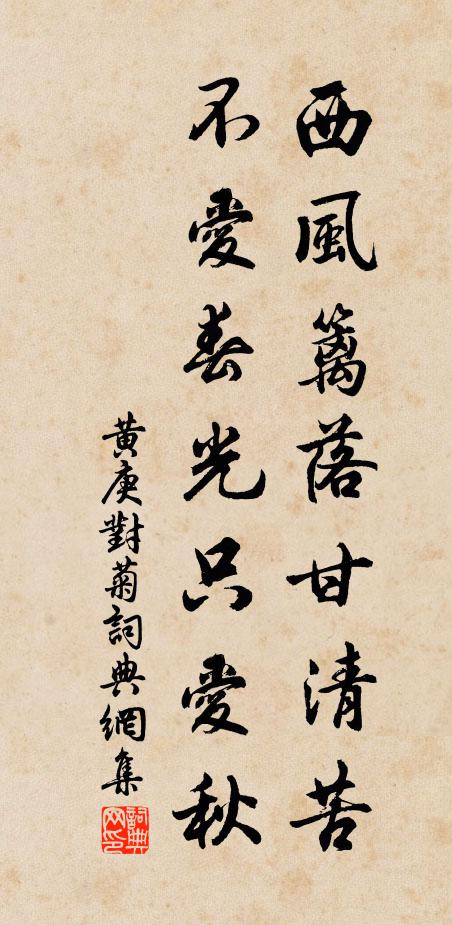 西風籬落甘清苦
不愛春光只愛秋
黄庚對菊詞典網集
詞典网印